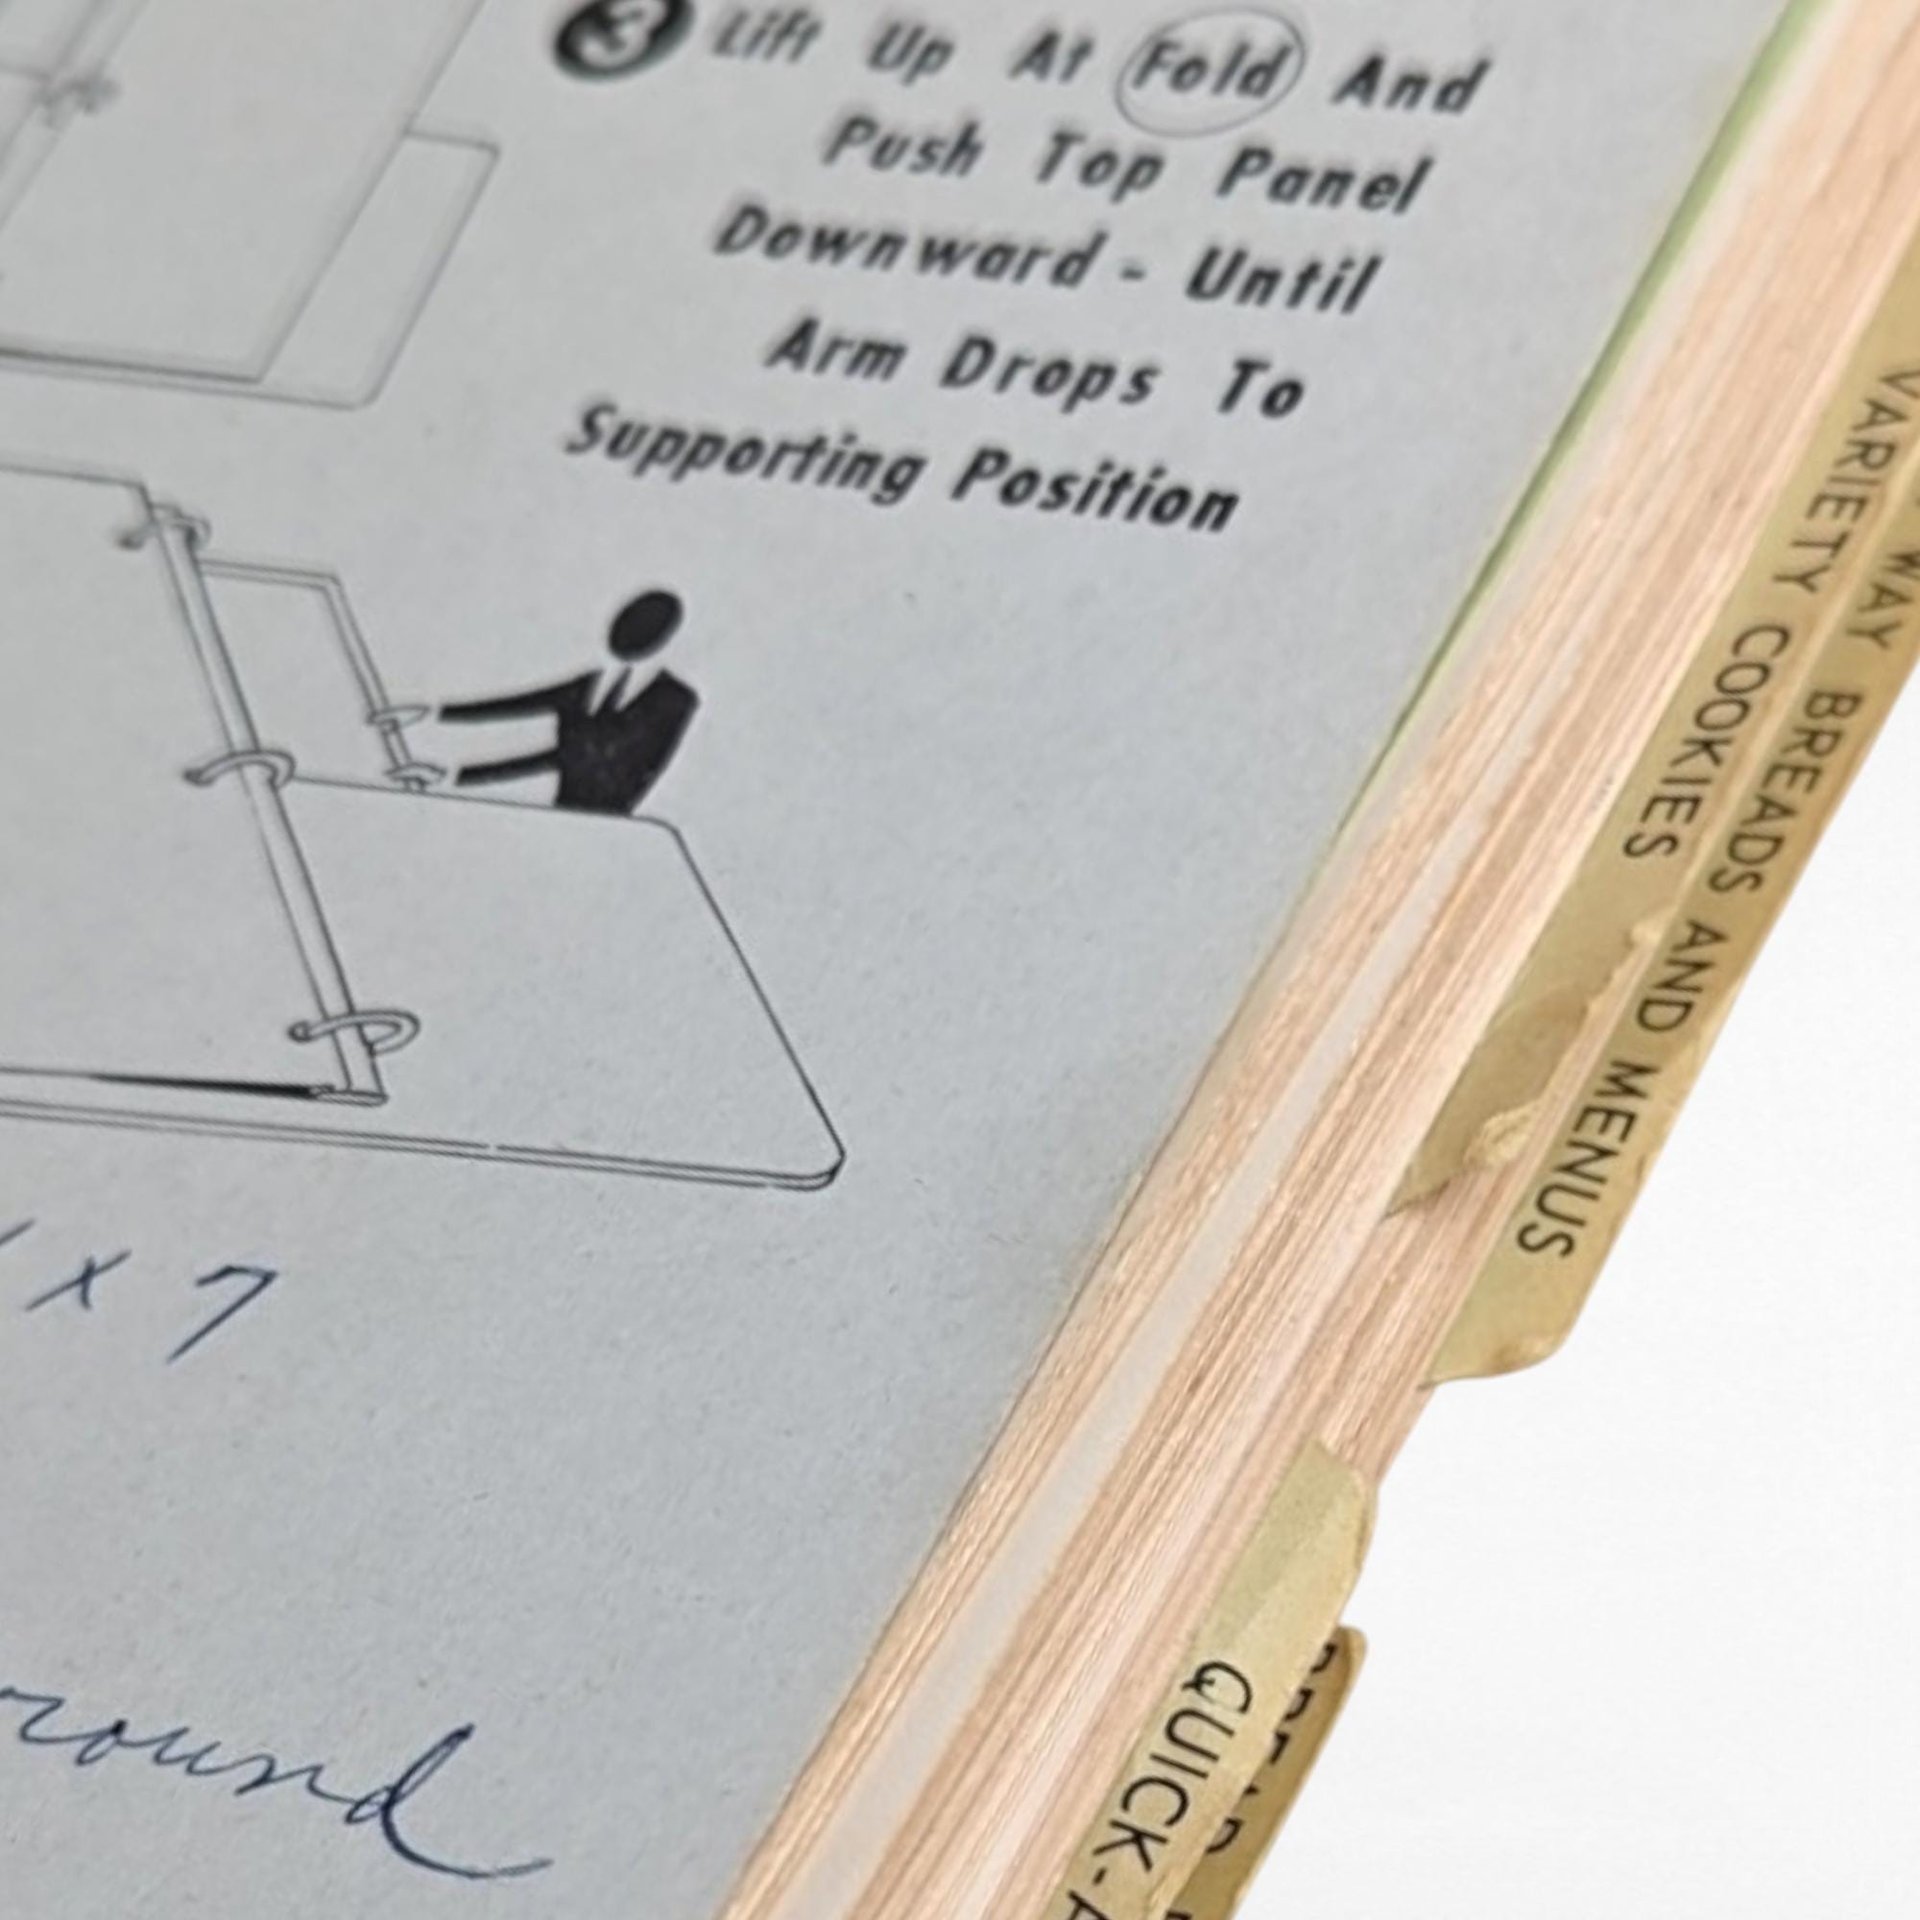 3 Lift Up At Fold And
Push Top Panel
Downward - Until
Arm Drops To
Supporting Position
x 7
round
VARIETY COOKIES
WAY BREADS AND MENUS
QUICK-A